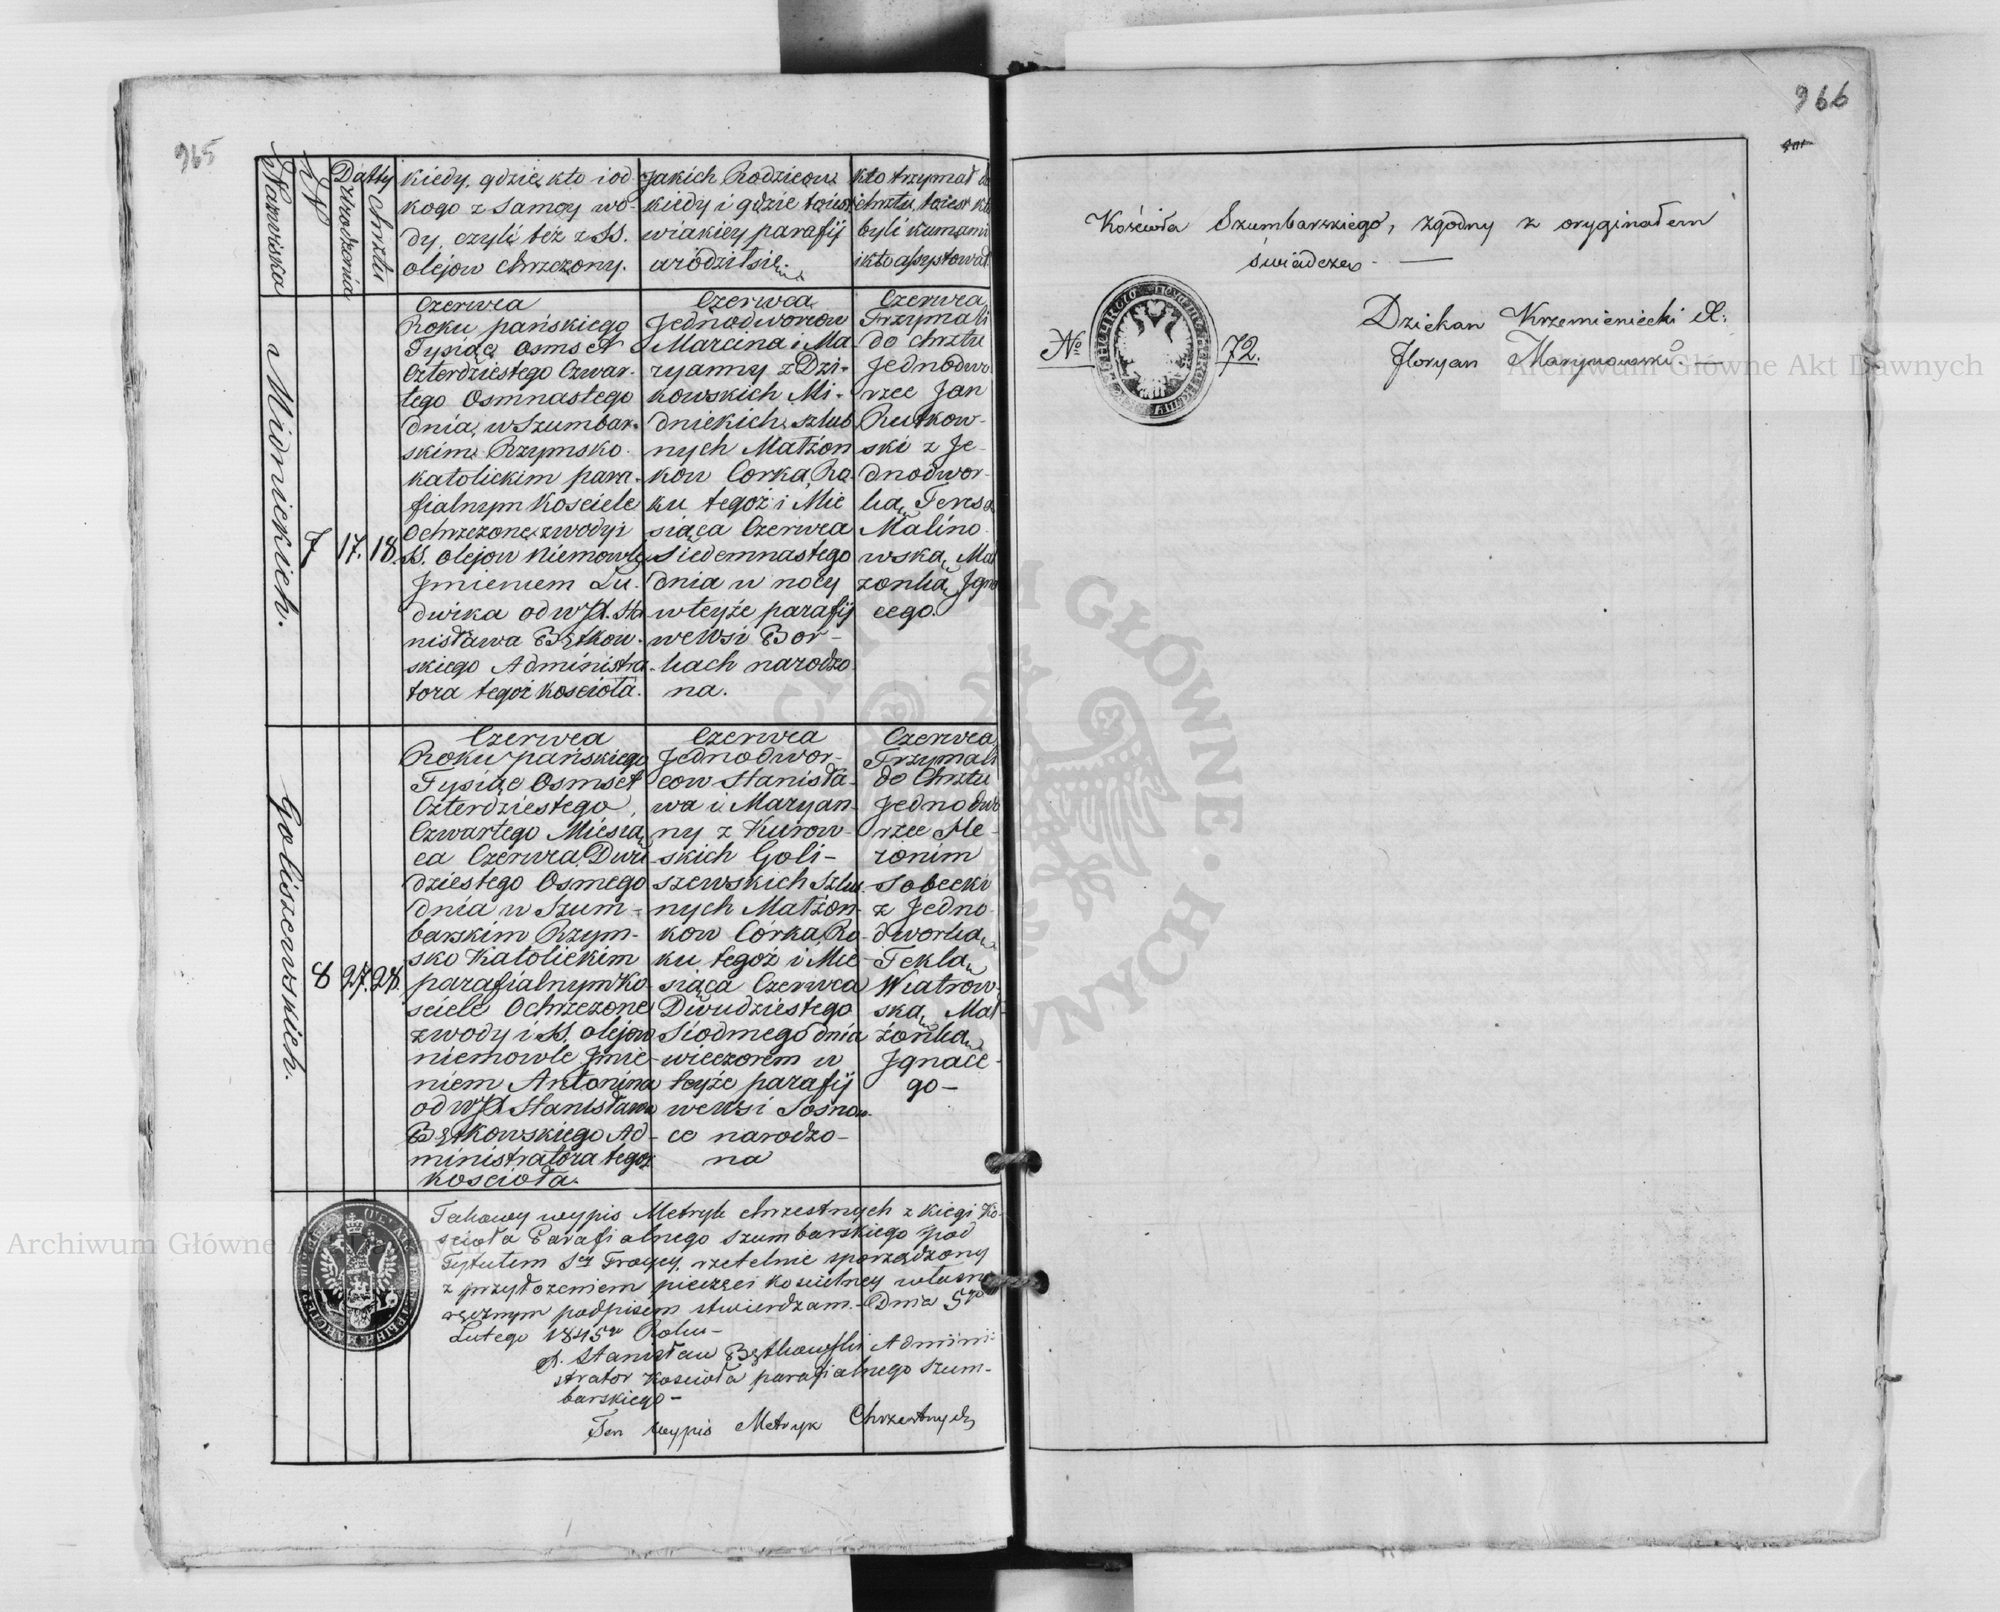 965
Nazwiska
N
Datty
Urodzenia
Chrztu
Kiedy, gdzie, kto i od
kogo z samey wo-
dy, czyli też z SS.
olejow chrzczony.
Jakich Rodzicow
kiedy i gdzie toiest
wiakiey parafij
urodził się
kto trzymał do
chrztu, toiest kto
byli kumami
i kto assystował
Midnickich.
7
17.
18.
Czerwca
Roku pańskiego
Tysiąc osmset
Czterdziestego Czwar-
tego Osmnastego
dnia, w Szumbar-
skim Rzymsko-
katolickim para-
fialnym kosciele
Ochrzczone z wody i
SS. olejow niemowle
Jmieniem Lu-
dwika od WJX. Sta
nisława Bętkow-
skiego Administra
tora tegoż kościoła.
Czerwca
Jednodworcow
Marcina i Ma-
ryanny z Dzi-
kowskich Mi-
dnickich, szlub
nych Małżon
kow Corka, Ro
ku tegoż i Mie
siąca Czerwca
Siedemnastego
dnia w nocy
w teyże parafij
we wsi Bor-
kach narodzo
na.
Czerwca
Trzymali
do chrztu
Jednodwo
rzec Jan
Rutkow-
ski z Je-
dnodwor-
ką Teresą
Malino-
wską, Mał
żonką Jgna
cego.
Goliszewskich.
8
27.
28.
Czerwca
Roku pańskiego
Tysiąc Osmset
Czterdziestego
Czwartego Miesią
ca Czerwca Dwu
dziestego Osmego
dnia w Szum-
barskim Rzym-
sko Katolickim
parafialnym Ko-
sciele Ochrzczone
z wody i SS. olejow
niemowle Jmie-
niem Antonina
od WJX Stanisława
Bętkowskiego Ad-
ministratora tegoż
kościoła.
Czerwca
Jednodwor-
cow Stanisła-
wa i Maryan-
ny z Kurow-
skich Goli-
szewskich Szlu
nych Małżon-
kow Córka, Ro-
ku tegoż i Mie
siąca Czerwca
Dwudziestego
Siodmego dnia
wieczorem w
teyże parafij
we Wsi Sosnow
ce narodzo-
na
Czerwca
Trzymali
do Chrztu
Jednodwo
rzec He-
ronim
Sobecki
z Jedno-
dworką
Teklą
Wiatrow-
ską, Mał-
żonką
Jgnace-
go-
Takowy wypis Metryk chrzestnych z ksiegi Ko-
scioła Parafialnego Szumbarskiego pod
Tytułem Sey Troycy, rzetelnie sporządzony
z przyłożeniem pieczęci kościelney własno
ręcznym podpisem stwierdzam.- Dnia 5go
Lutego 1845go Roku-
X. Stanisław Bętkowski Admini-
strator Kościoła parafialnego Szum-
barskiego-
Ten wypis Metryk Chrzestnych
966
Kościoła Szumbarskiego, zgodny z oryginałem
świadczę.
No 72.
Dziekan Krzemieniecki X:
Floryan Marynowski
Archiwum Główne Akt Dawnych
Archiwum Główne Akt Dawnych